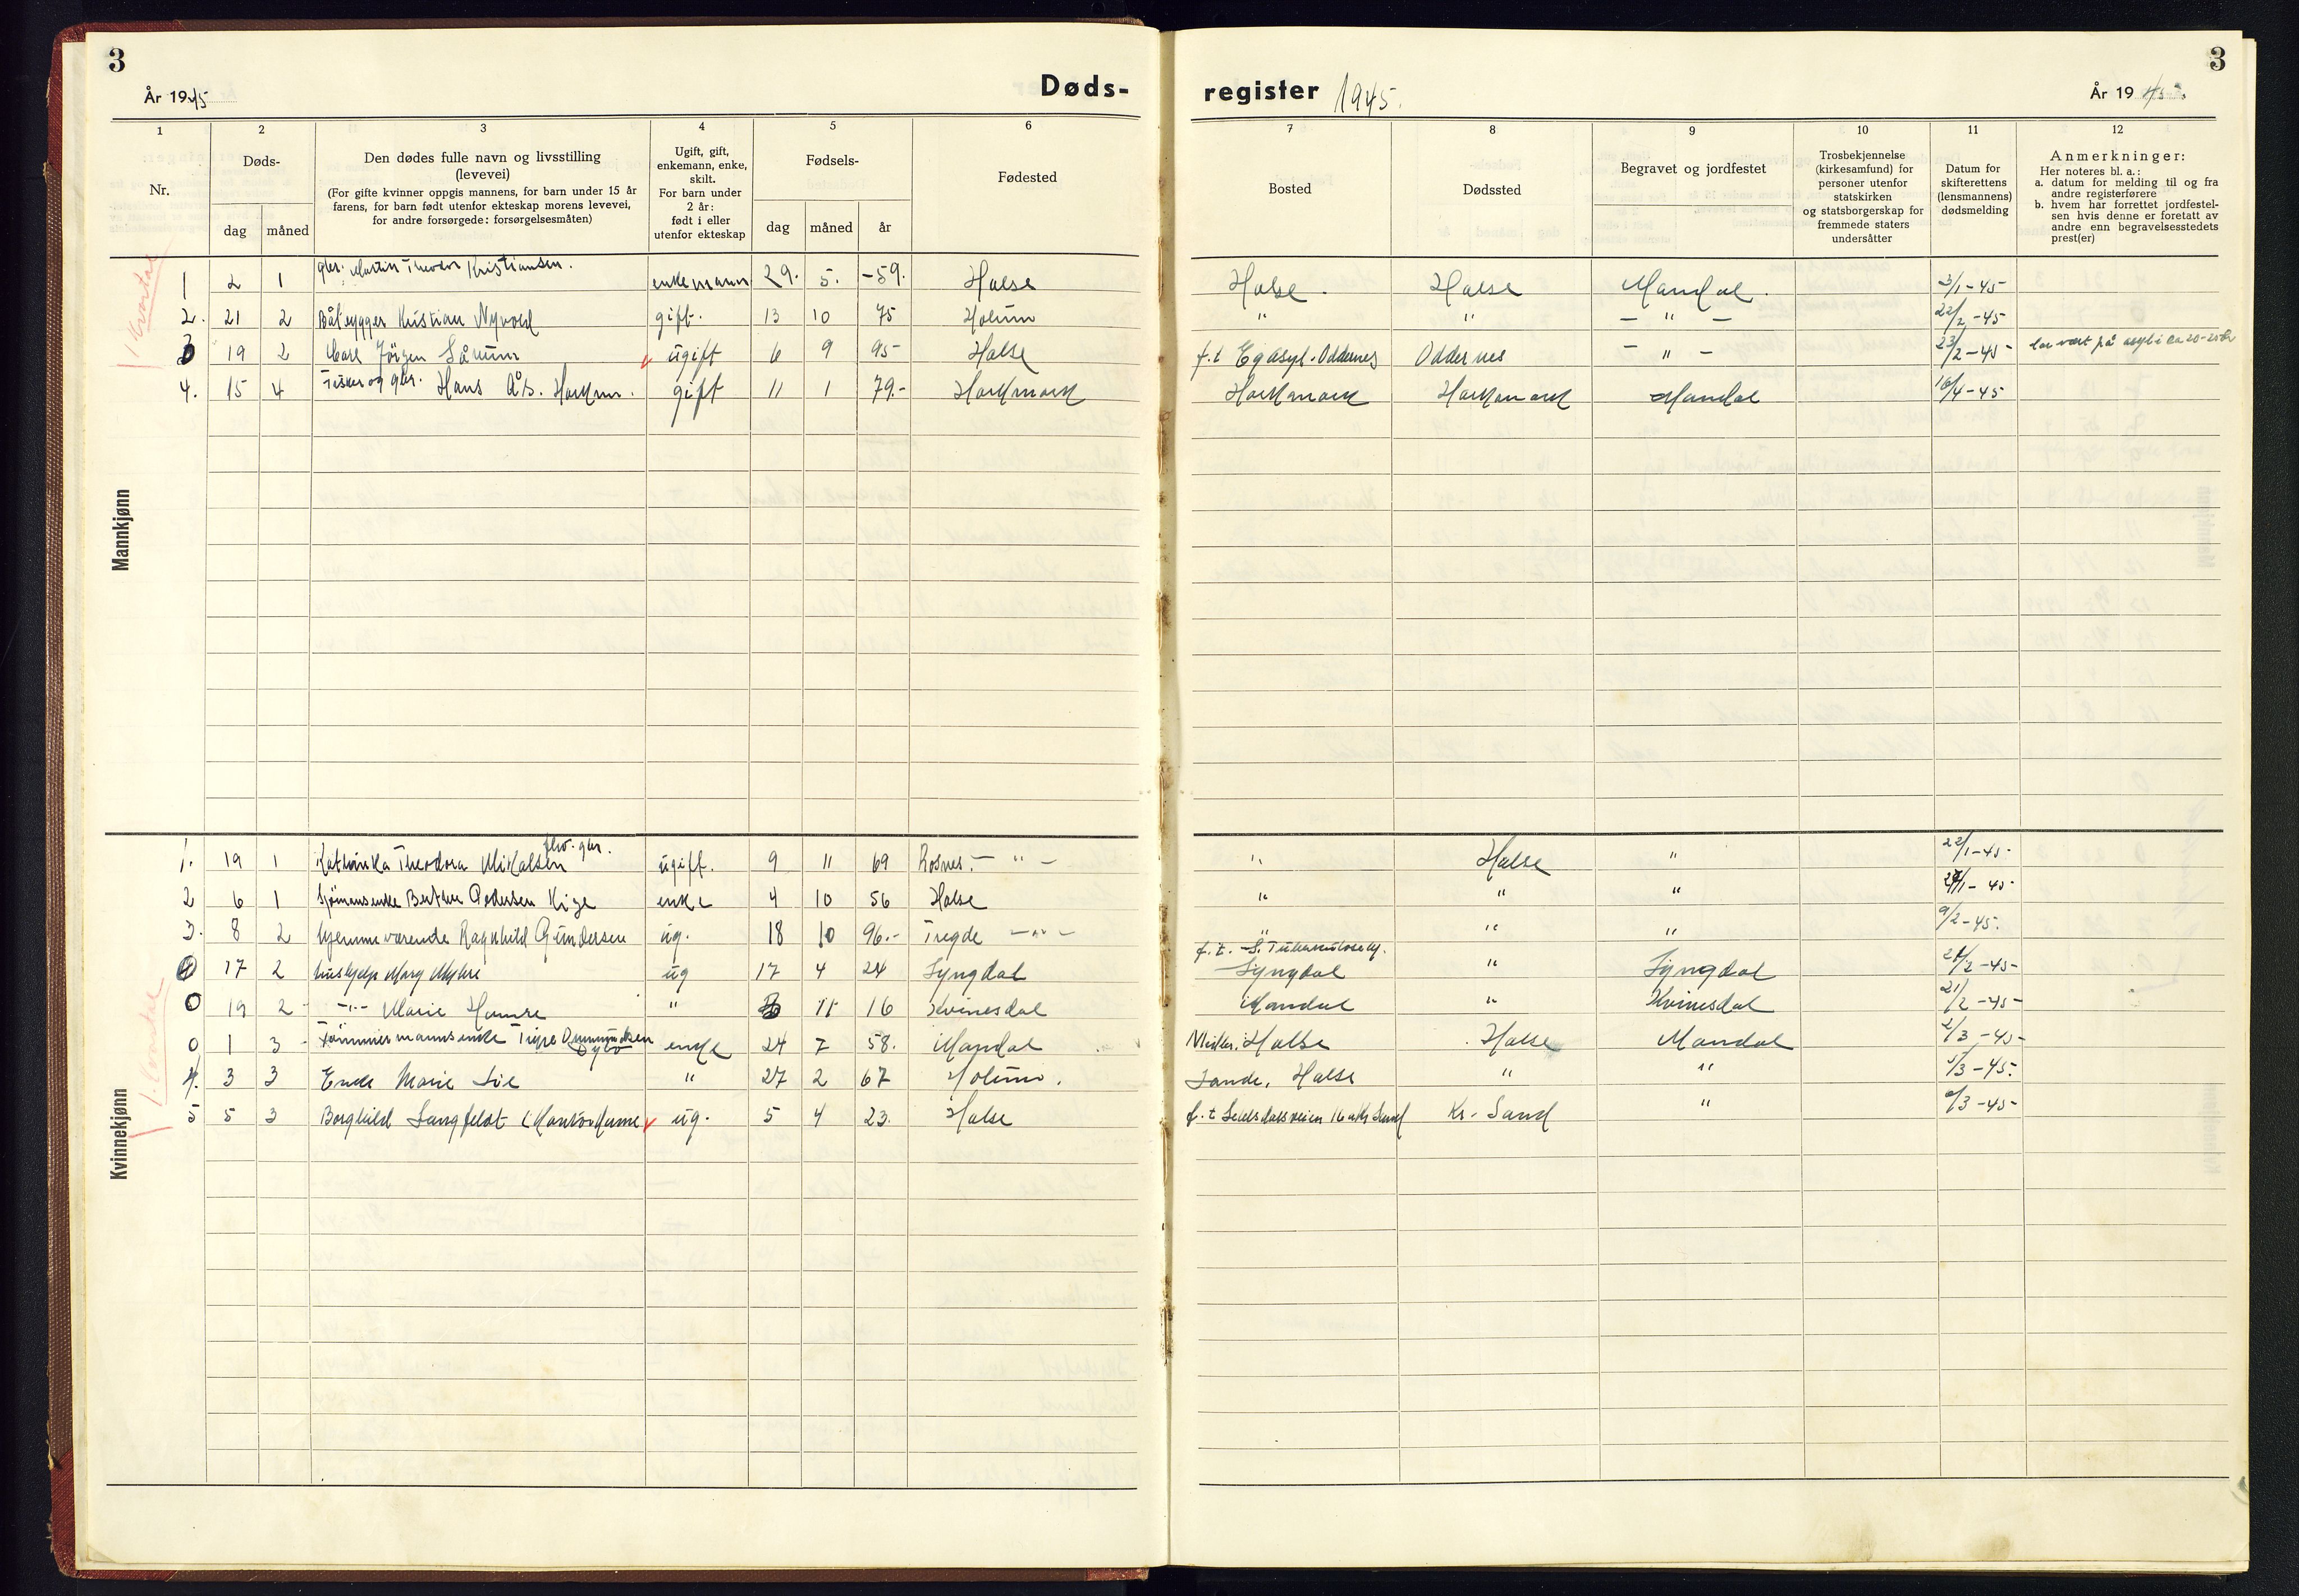 3
3
År 1945
Døds-
register 1945.
År 1945.
1
2
3
4
5
6
7
8
9
10
11
12
Nr.
Døds-
dag
måned
Den dødes fulle navn og livsstilling
(levevei)
(For gifte kvinner oppgis mannens, for barn under 15 år
farens, for barn født utenfor ekteskap morens levevei,
for andre forsørgede: forsørgelsesmåten)
Ugift, gift,
enkemann, enke,
skilt.
For barn under
2 år:
født i eller
utenfor ekteskap
Fødsels-
dag
måned
år
Fødested
Bosted
Dødssted
Begravet og jordfestet
Trosbekjennelse
(kirkesamfund) for
personer utenfor
statskirken
og statsborgerskap for
fremmede staters
undersåtter
Datum for
skifterettens
(lensmannens)
dødsmelding
Anmerkninger:
Her noteres bl. a.:
a. datum for melding til og fra
andre registerførere
b. hvem har forrettet jordfestel-
sen hvis denne er foretatt av
andre enn begravelsesstedets
prest(er)
1 Kvartal
Mannkjønn
1 2 1 gbr. Martin Theodor Kristiansen. enkemann 29. 5. -59. Halse Halse. Halse Mandal. 3/1-45
2. 21 2 Båtbygger Kristian Nyvold gift. 13 10 75 Holum " " — " — 22/2-45
3 19 2 Carl Jörgen Sånum ugift 6 9 95 Halse f.t Eg asyl. Oddernes Oddernes — " — 23/2-45 har vært på asyl i ca 20-25 år
4. 15 4 Fisker og gbr. Hans Ås. Harkm. gift 11 1 79.- Harkmark Harkmark Harkmark Mandal 16/4-45
Kvinnekjønn
1. 19 1 Kathinka Theodora Mikalsen fhv. gbr. ugift. 9 11 69 Rosnes. — " — " Halse " 22/1-45.
2 6 1 Sjömannsenke Berthe Pedersen Kige enke 4 10 56 Halse " " " /1-45
3. 8 2 hjemmeværende Ragnhild Gundersen ug. 18 10 96.- Tregde — " — " " " 9/2-45.
17 2 hushjelp Mary Myhre ug 17 4 24 Lyngdal f.t. Lyngdal " Lyngdal 21/2-45
0 19 2 — " — Marie Hamre " 11 16 Kvinesdal Mandal " Kvinesdal 21/2-45
0 1 3 Tömmermannsenke enke 24 7 58. Mandal Halse Halse Mandal 2/3-45
4. 3 3 Enke Marie Lie " 27 2 67 Holum. Sande, Halse " " 5/3-45.
5 5 3 Borghild Langfeldt (Kontordame ug. 5 4 23. Halse f.t 16 Kr Sand Kr. Sand " 6/3-45